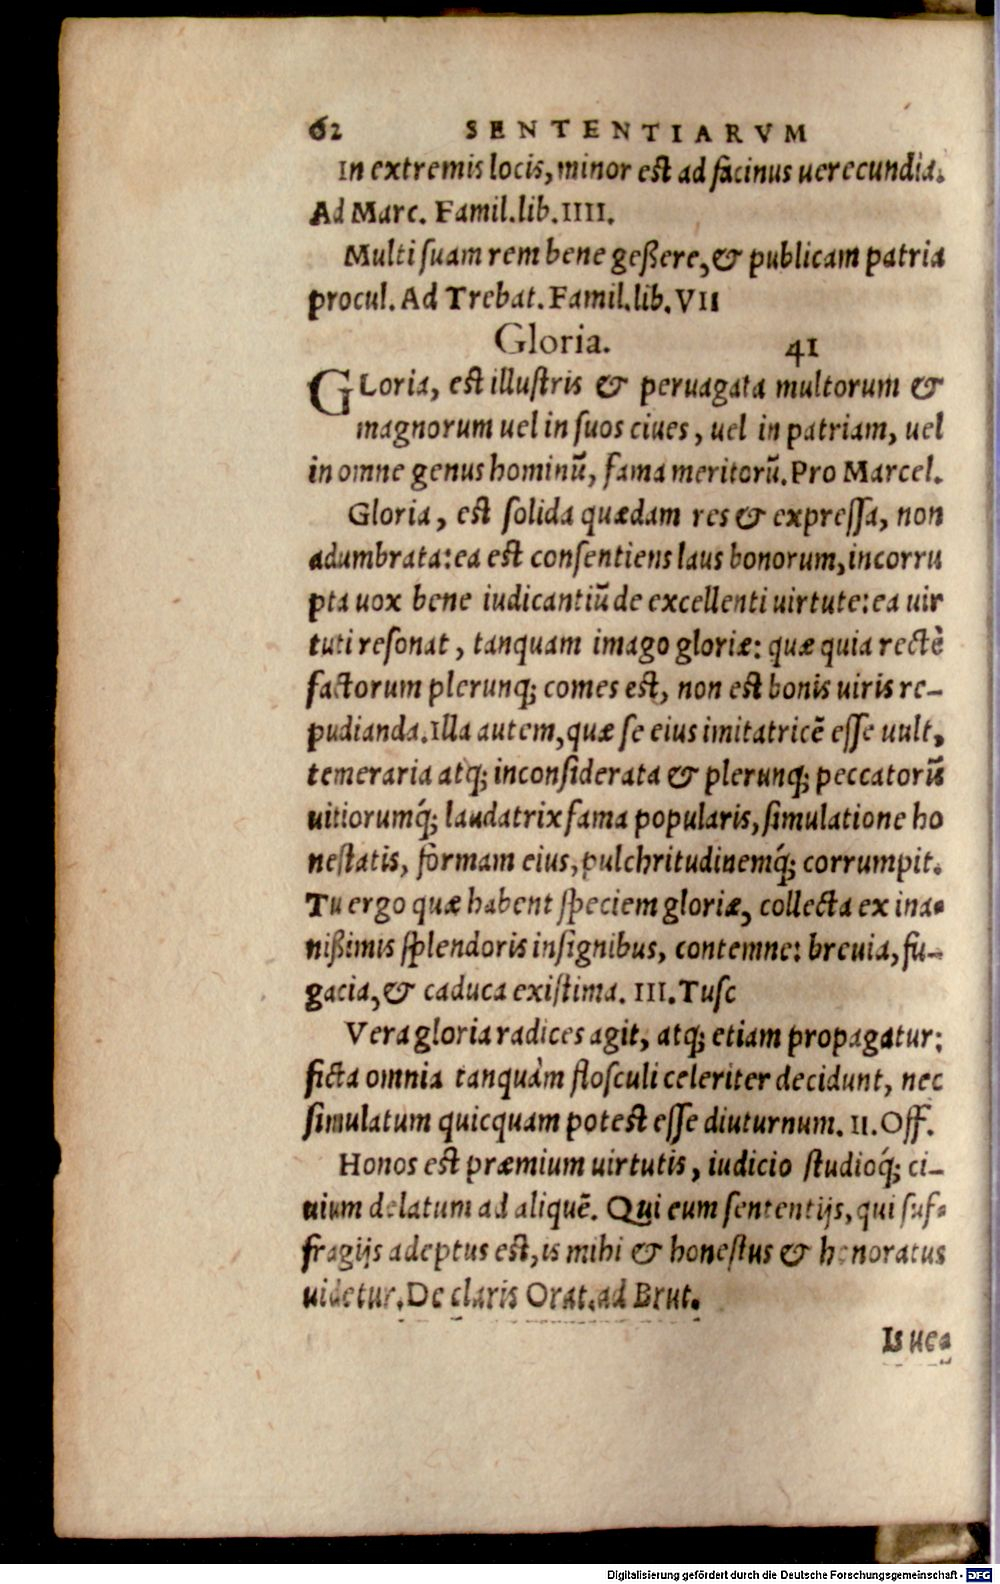 62 SENTENTIARVM
In extremis locis, minor est ad facinus uerecundia.
Ad Marc. Famil. lib. IIII.
Multi suam rem bene geßere, & publicam patria
procul. Ad Trebat. Famil. lib. VII
Gloria. 41
GLoria, est illustris & peruagata multorum &
magnorum uel in suos ciues, uel in patriam, uel
in omne genus hominū, fama meritorū. Pro Marcel.
Gloria, est solida quædam res & expressa, non
adumbrata: ea est consentiens laus bonorum, incorru
pta uox bene iudicantiū de excellenti uirtute: ea uir
tuti resonat, tanquam imago gloriæ: quæ quia rectè
factorum plerunq; comes est, non est bonis uiris re-
pudianda. Illa autem, quæ se eius imitatricē esse uult,
temeraria atq; inconsiderata & plerunq; peccatorū
uitiorumq́; laudatrix fama popularis, simulatione ho
nestatis, formam eius, pulchritudinemq́; corrumpit.
Tu ergo quæ habent speciem gloriæ, collecta ex ina-
nißimis splendoris insignibus, contemne: breuia, fu-
gacia, & caduca existima. III. Tusc
Vera gloria radices agit, atq; etiam propagatur:
ficta omnia tanquàm flosculi celeriter decidunt, nec
simulatum quicquam potest esse diuturnum. II. Off.
Honos est præmium uirtutis, iudicio studioq́; ci-
uium delatum ad aliquē. Qui eum sententijs, qui suf-
fragijs adeptus est, is mihi & honestus & honoratus
uidetur. De claris Orat. ad Brut.
Is ue-
Digitalisierung gefördert durch die Deutsche Forschungsgemeinschaft - DFG